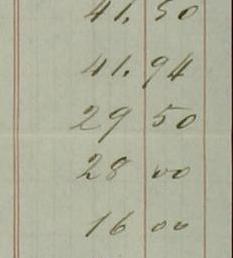 41. 50
41. 94
29 50
28 00
16 00